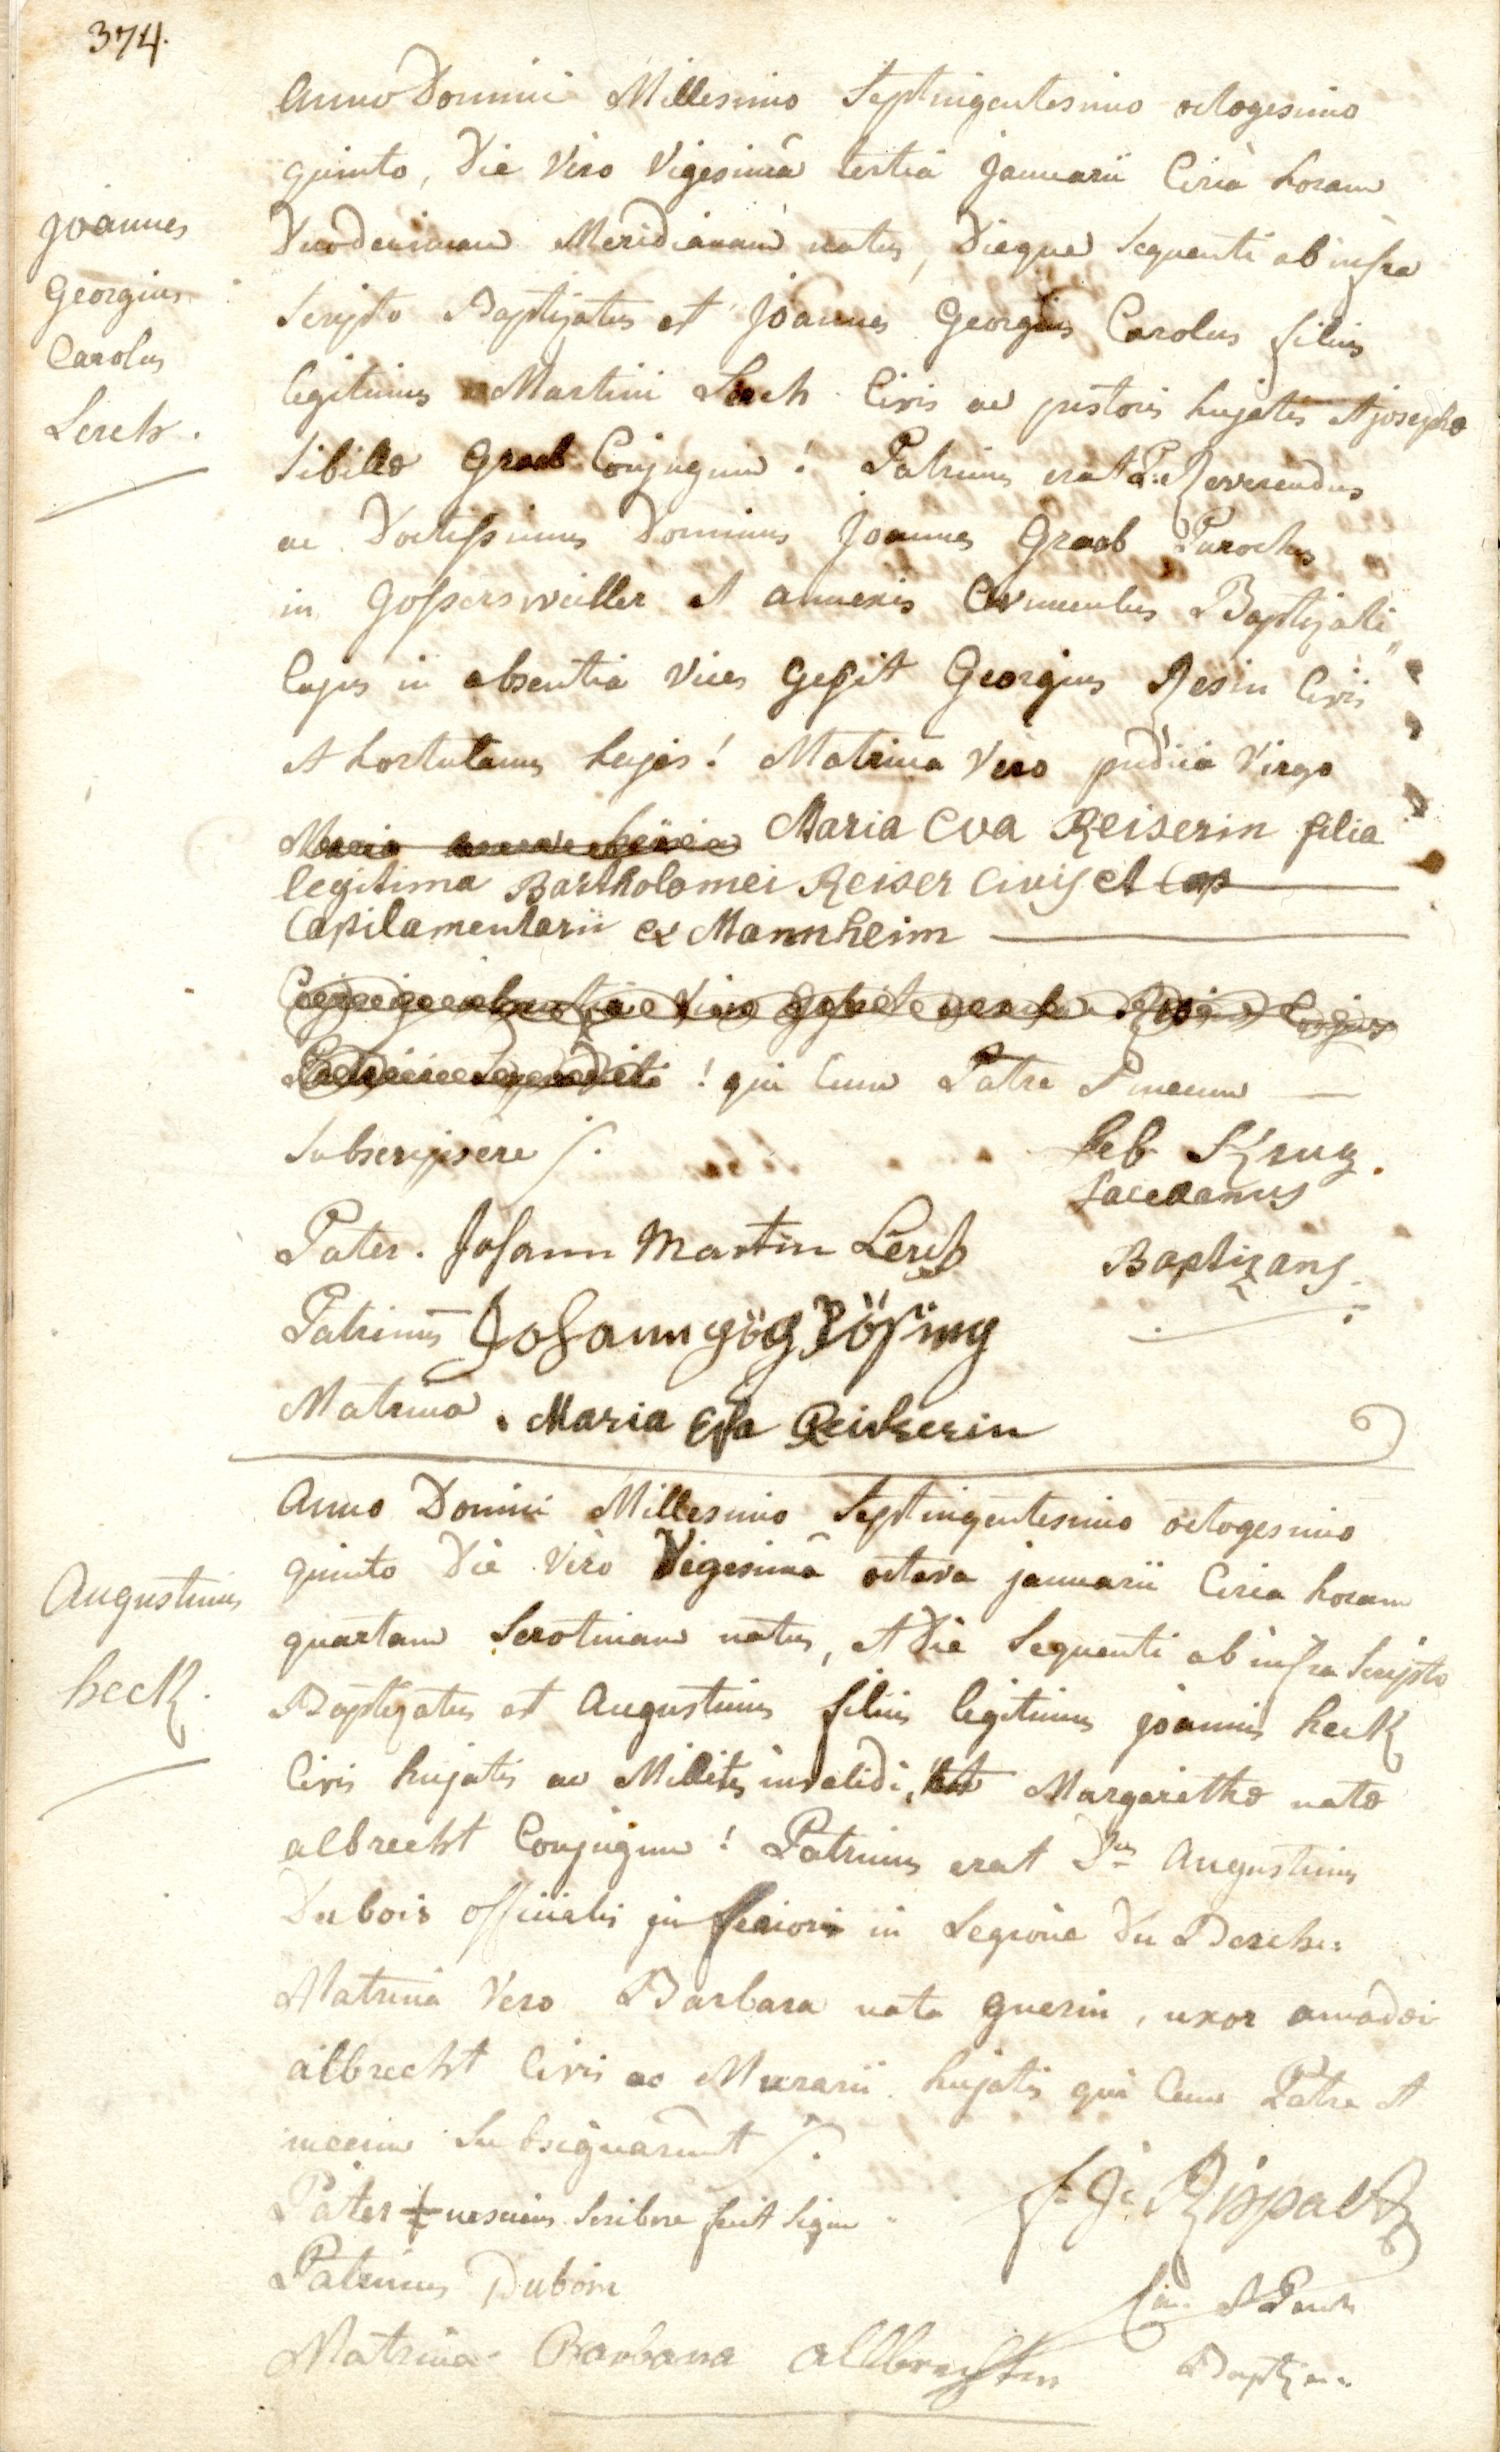 374.
Joannes
Georgius
Carolus
Lerch.
Anno Domini Millesimo Septingentesimo octogesimo
quinto, Die Vero Vigesimâ tertia Januarii Circa horam
Duodecimam Meridianam natus, Dieque Sequenti ab infra
Scripto Baptizatus est Joannes Georgius Carolus filius
legitimus Martini Lerch Civis ac pistoris hujatis et josephæ
Sibillæ Graab Conjugum! Patrinus erat P: Reverendus
ac Doctissimus Dominus Joannes Graab Parochus
in Gossersweiller et annexis Avunculus Baptizati,,
Cujus in absentia Vices Gessit Georgius Resin Civis
et hortulanus hujas! Matrina Vero pudica Virgo
Maria Eva Reiserin filia
legitima Bartholomei Reiser Civis et Cap
Capilamentarii ex Mannheim
! qui Cum Patre Mecum
Subscripsere /.
Seb Krug.
Sacellanus
Baptizans.
Pater. Johann Martin Lerch
Patrinus Johann görg Rösing
Matrina. Maria Efa Reiserin
Augustinus
heck.
Anno Domini Millesimo Septingentesimo octogesimo
quinto Die Vero Vigesimâ octava januarii Circa horam
quartam Serotinam natus, et Die Sequenti ab infra Scripto
Baptizatus est Augustinus filius legitimus joannis heck
Civis hujatis ac Militis invalidi, et Margarithæ natæ
albrecht Conjugum! Patrinus erat Dus Augustinus
Dubois officialis inferioris in Legione Du Berche:
Matrina Vero Barbara nata guerin, uxor amadei
albrecht Civis ac Murarii hujatis qui Cum Patre et
mecum Subsignarunt /.
Pater + nesciens Scribere fecit Signum
Patrinus Dubois
Matrina Barbara allbrechtin